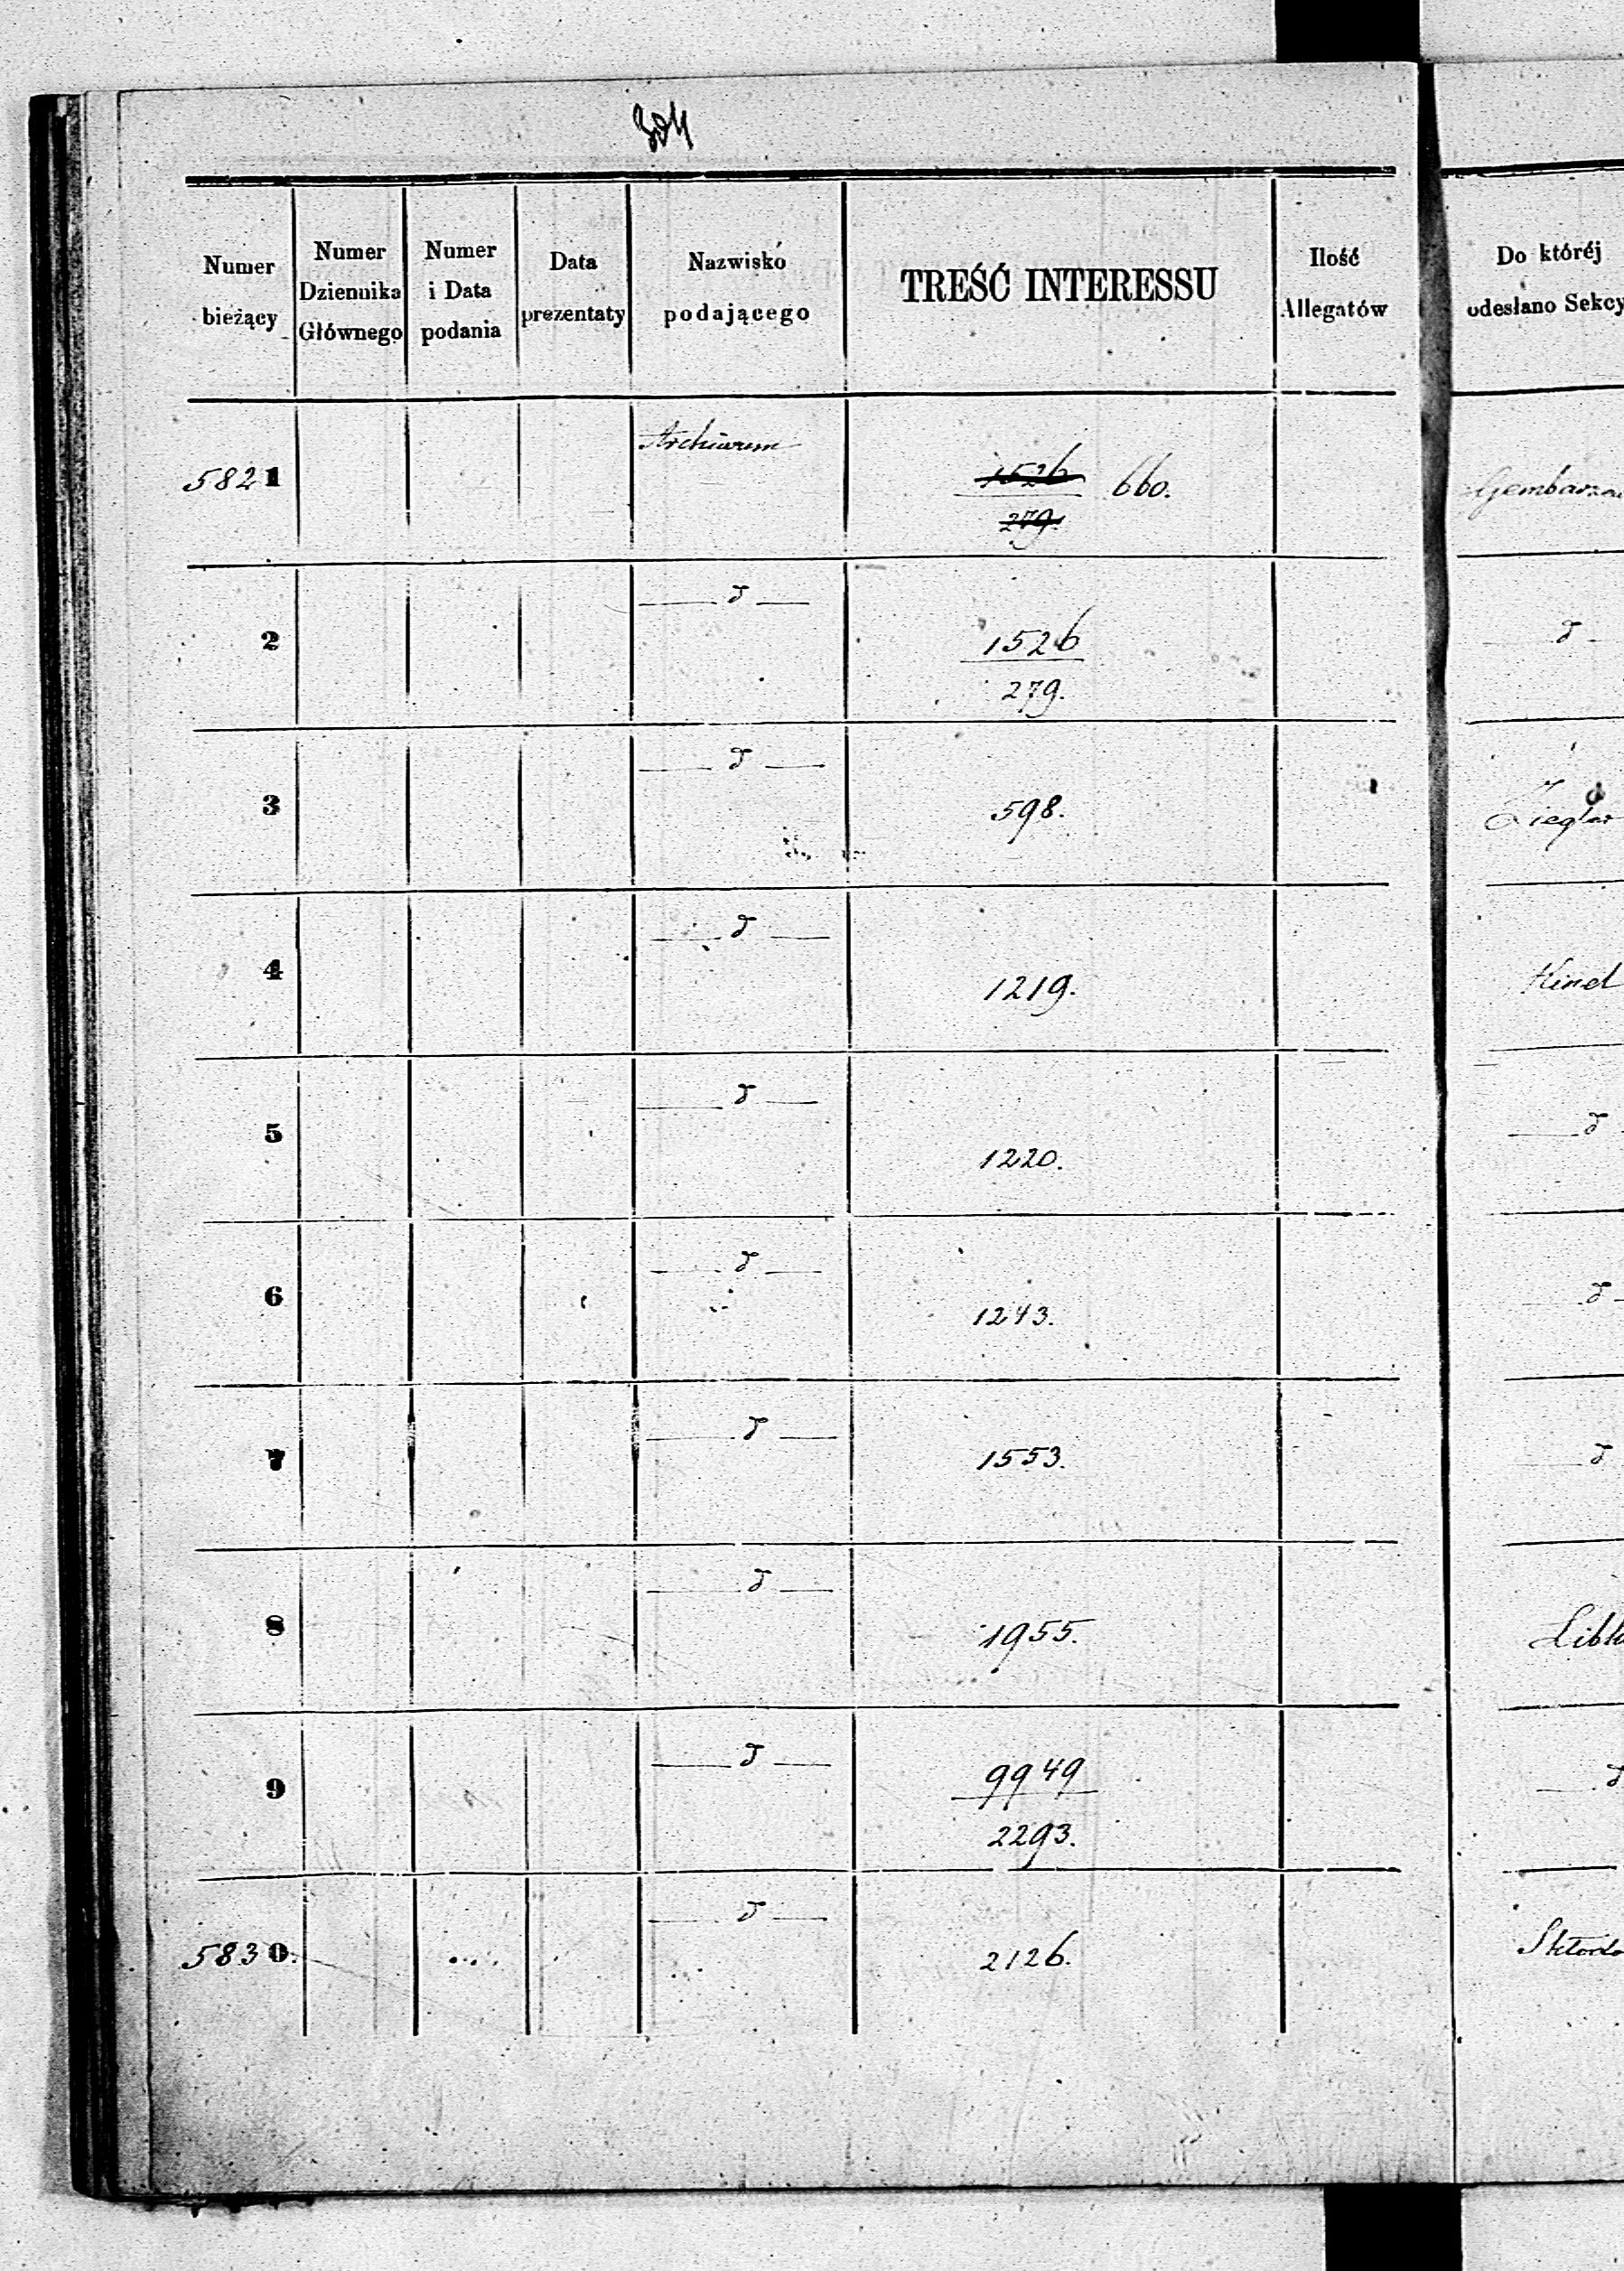 304
Numer bieżący
Numer Dziennika Głównego
Numer i Data podania
Data prezentaty
Nazwisko podającego
TREŚĆ INTERESSU
Ilość Allegatów
Do któréj odesłano Sekcy
5821 Archiwum 1526 660.
279.
2 d 1526 d
279.
3 d 598. Ziegler
4 d 1219. Kinel
5 d 1220. d
6 d 1243. d
7 d 1553. d
8 d 1955.
9 d 9949 d
2293.
5830. d 2126.